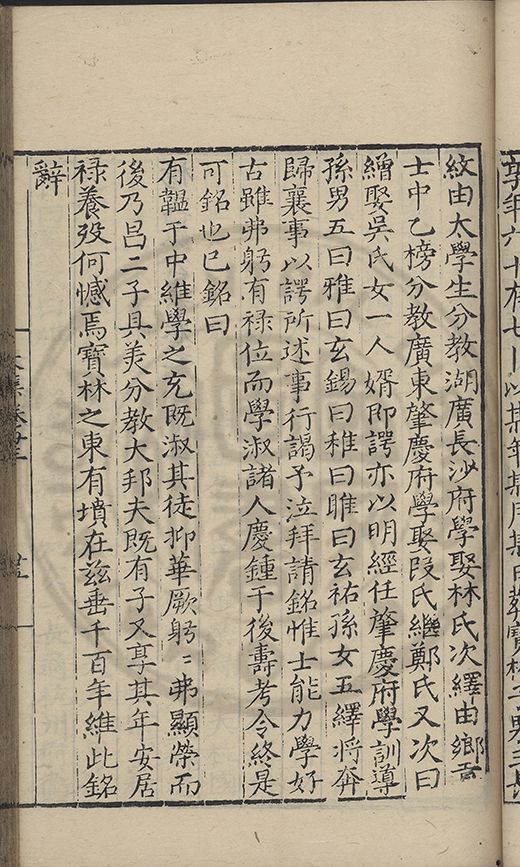 紋由太學生分教湖廣長沙府學娶林氏次繹由鄉貢
士中乙榜分教廣東肇慶府學娶段氏繼鄭氏又次曰
繒娶吳氏女一人婿即諤亦以明經任肇慶府學訓導
孫男五曰雅曰玄錫曰稚曰睢曰玄祐孫女五繹將奔
歸襄事以諤所述事行謁予泣拜請銘惟士能力學好
古雖弗躬有祿位而學淑諸人慶鍾于後壽考令終是
可銘也已銘曰
有韞于中維學之充既淑其徒抑華厥躬〻弗顯榮而
後乃昌二子具美分教大邦夫既有子又享其年安居
祿養歿何憾焉寶林之東有墳在茲垂千百年維此銘
辭